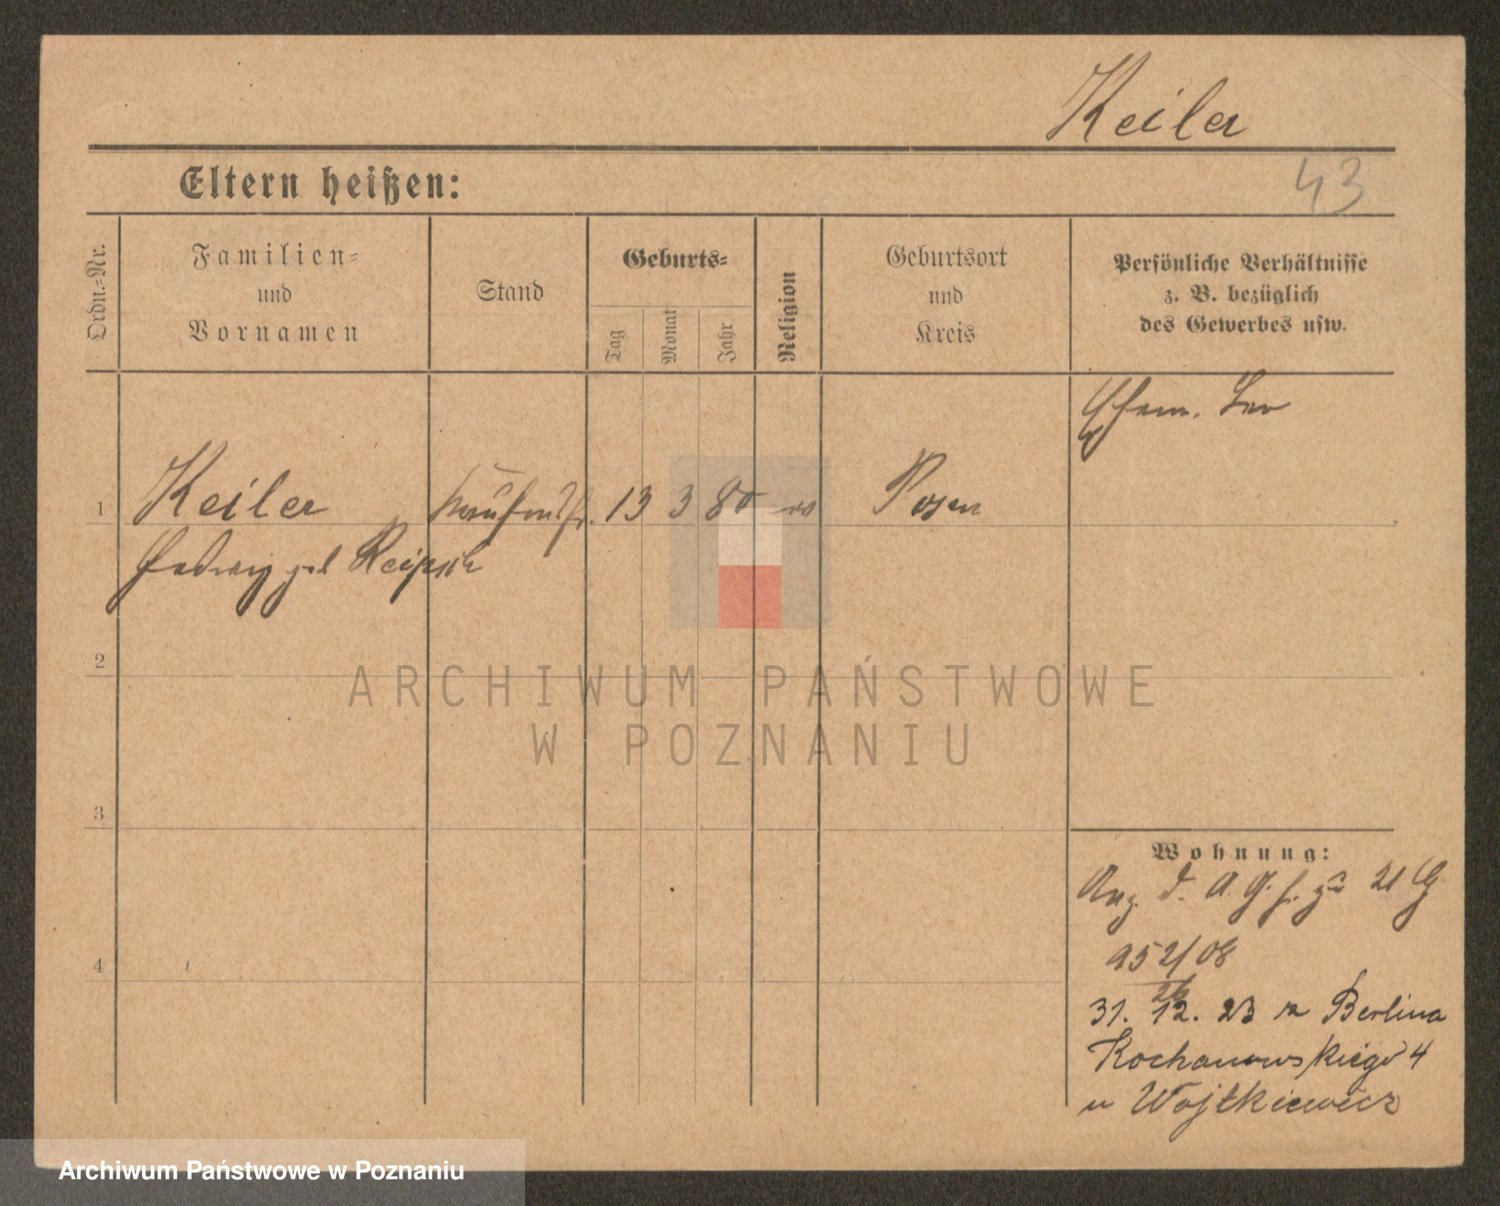 Keiler
43
Eltern heißen:
Ordn.-Nr.
Familien-
und
Vornamen
Stand
Geburts-
Tag
Monat
Jahr
Religion
Geburtsort
und
Kreis
Persönliche Verhältnisse
z. B. bezüglich
des Gewerbes usw.
Ehem. Leo
1 Keiler Kaufm 13 3 80 Posen
Hedwig geb
2
3
4
Wohnung:
Anz. d. A. G. f. zu 21 G
252/08
31. 12. 23 z Berlina
Kochanowskiego 4
u Wojtkiewicz
ARCHIWUM PAŃSTWOWE
W POZNANIU
Archiwum Państwowe w Poznaniu